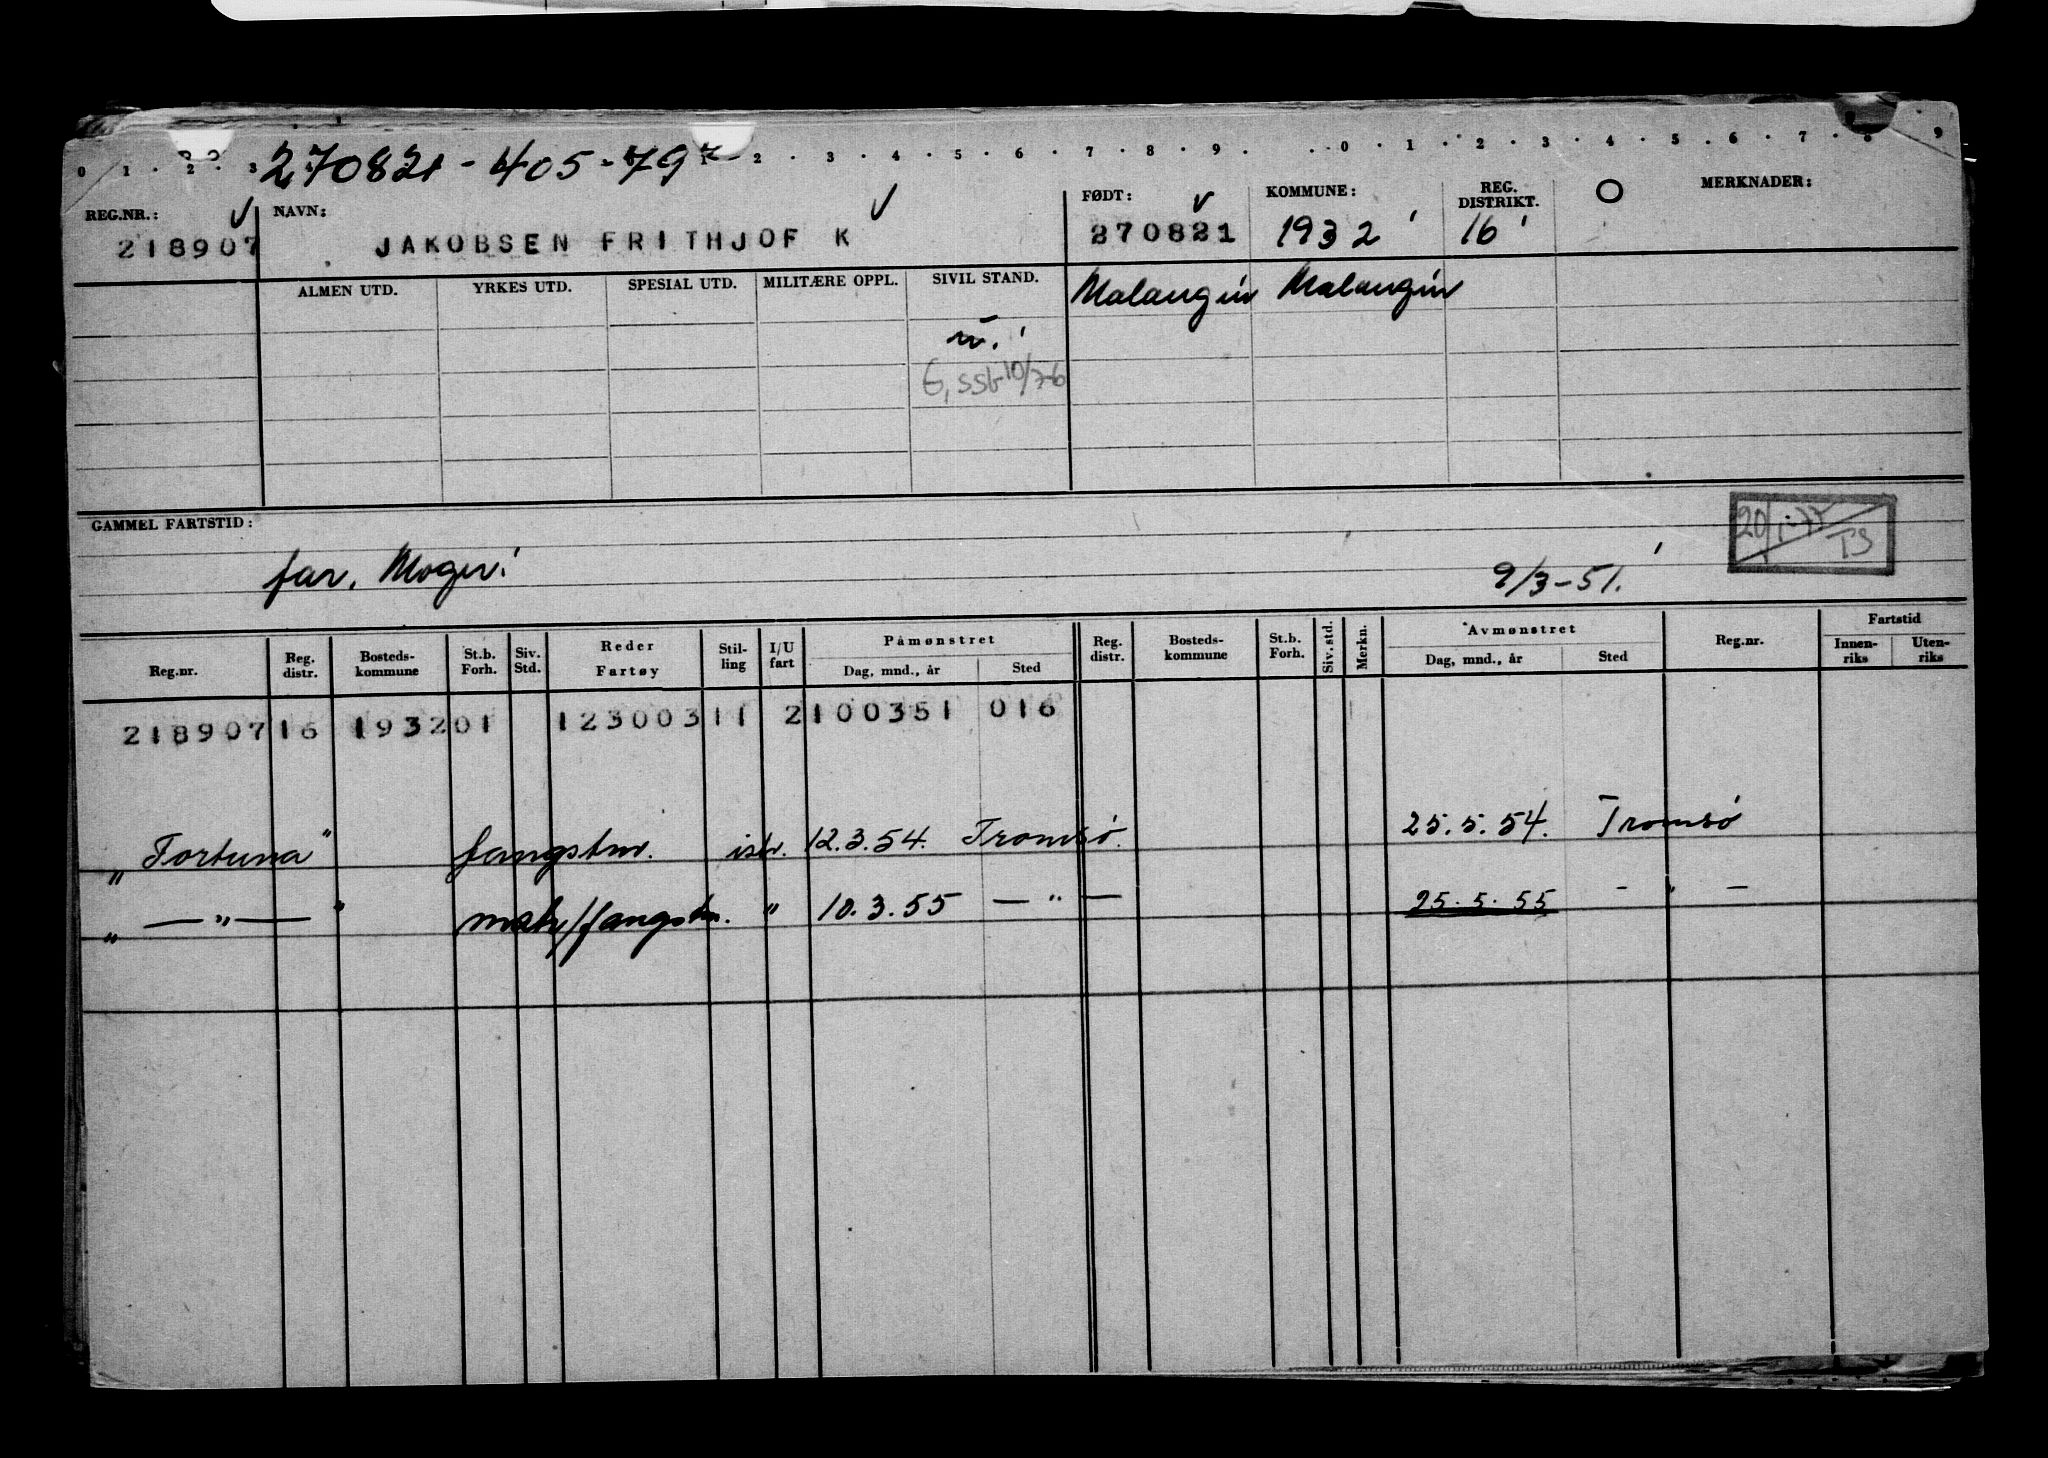 0 1 2 3 1 2 3 4 5 6 7 8 9 0 1 2 3 4 5 6 7 8 9
270821-405-79
REG.NR.: NAVN: FØDT: KOMMUNE: REG. DISTRIKT. MERKNADER:
218907 JAKOBSEN FRITHJOF K 270821 1932 16
ALMEN UTD. YRKES UTD. SPESIAL UTD. MILITÆRE OPPL. SIVIL STAND. Malangen Malangen
u.
G, SSb 10/76
GAMMEL FARTSTID:
20/1-77 TS
far. Moger. 9/3-51.
Reg.nr. Reg. distr. Bosteds-kommune St.b. Forh. Siv. Std. Reder Fartøy Stil-ling I/U fart Påmønstret Dag, mnd., år Sted Reg. distr. Bosteds-kommune St.b. Forh. Siv. std. Merkn. Avmønstret Dag, mnd., år Sted Reg.nr. Fartstid Innen-riks Uten-riks
218907 16 1932 01 123003 11 2 100351 016
"Fortuna" fangstm. ish. 12.3.54. Tromsø. 25.5.54. Tromsø
" — " — " matr/fangstm. " 10.3.55 — " — 25.5.55 — " —